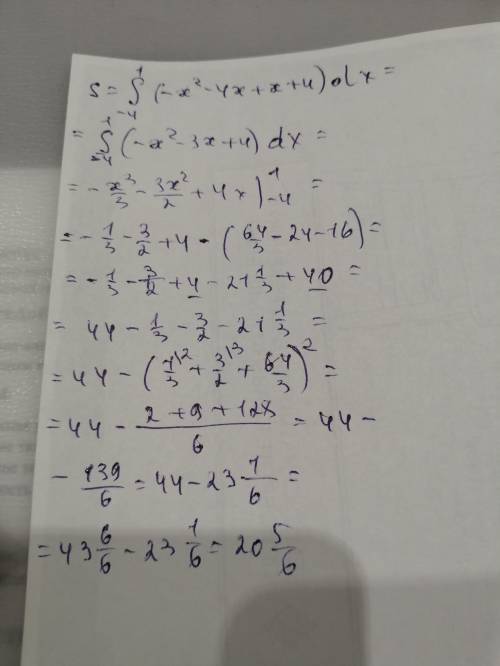 S = ∫₋₄¹ (-x² - 4x + x + 4) dx =
= ∫₋₄¹ (-x² - 3x + 4) dx =
= - x³/3 - 3x²/2 + 4x |₋₄¹ =
= - 1/3 - 3/2 + 4 - (64/3 - 24 - 16) =
= - 1/3 - 3/2 + 4 - 21 1/3 + 40 =
= 44 - 1/3 - 3/2 - 21 1/3 =
= 44 - (1/3 \2 + 3/2 \3 + 64/3)² =
= 44 - (2 + 9 + 128)/6 = 44 -
- 139/6 = 44 - 23 1/6 =
= 43 6/6 - 23 1/6 = 20 5/6